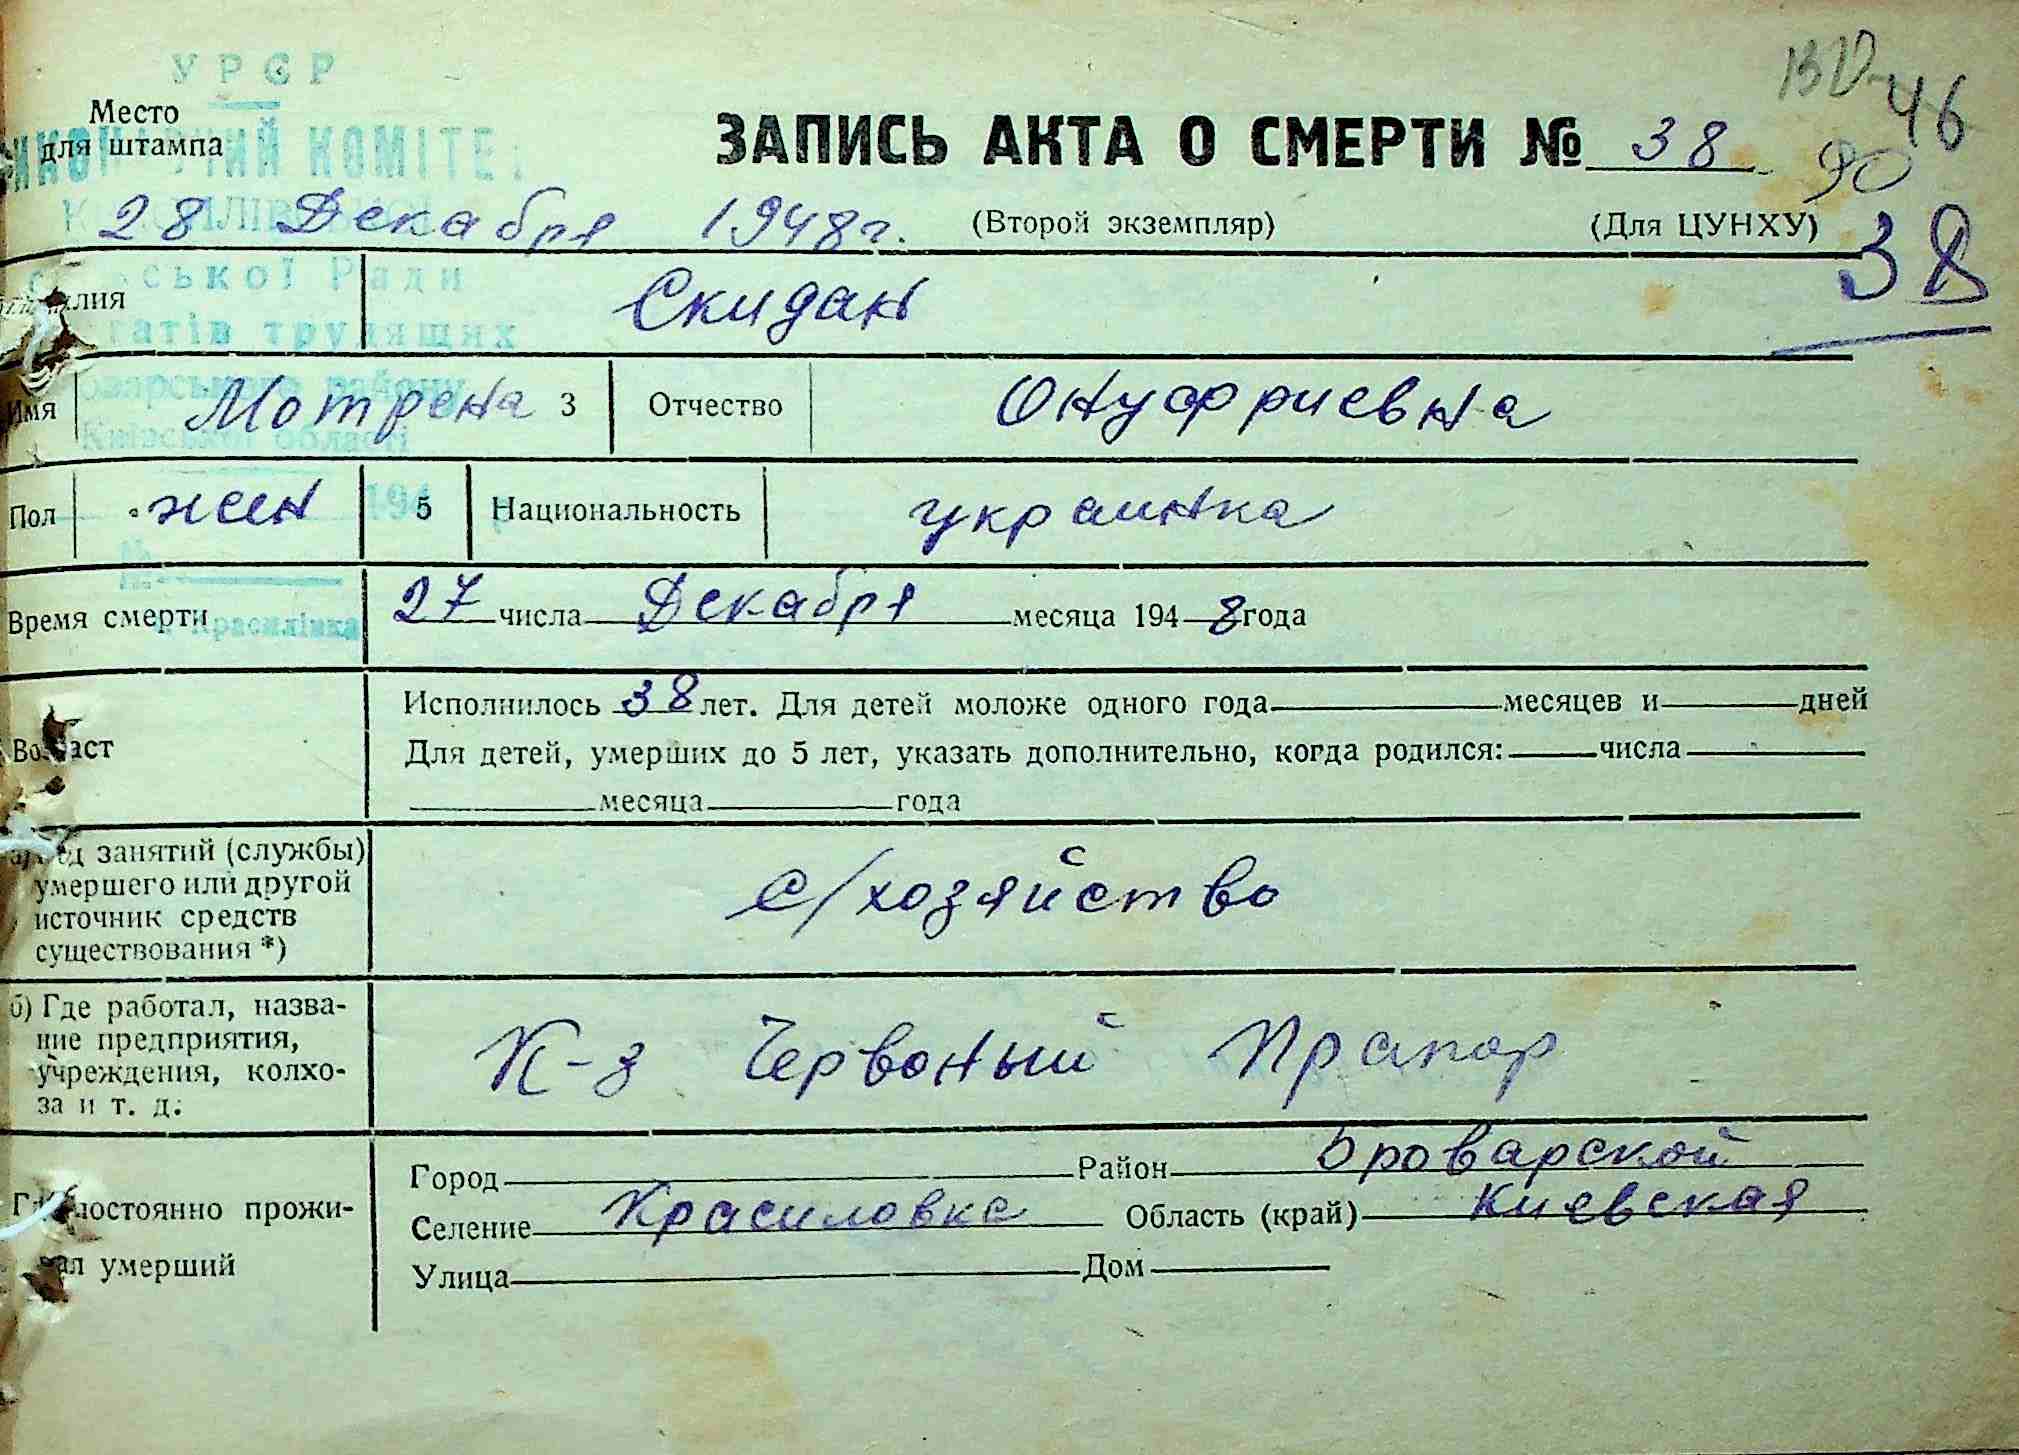 УРСР
Место
для штампа
КОМІТЕ
ЗАПИСЬ АКТА О СМЕРТИ № 38
46
90
28 Декабря 1948 г. (Второй экземпляр) (Для ЦУНХУ)
38
ської Ради
Скидан
трудящих
району
Имя Мотрена 3 Отчество Онуфриевна
Київської області
Пол жен 5 Национальность украинка
194
№
Время смерти 27 числа Декабря месяца 1948 года
Красилівка
Возраст
Исполнилось 38 лет. Для детей моложе одного года месяцев и дней
Для детей, умерших до 5 лет, указать дополнительно, когда родился: числа
месяца года
занятий (службы)
умершего или другой
источник средств
существования *)
с/хозяйство
б) Где работал, назва-
ние предприятия,
учреждения, колхо-
за и т. д.
К-з Червоный Прапор
постоянно прожи-
вал умерший
Город Район Броварской
Селение Красиловка Область (край) Киевская
Улица Дом